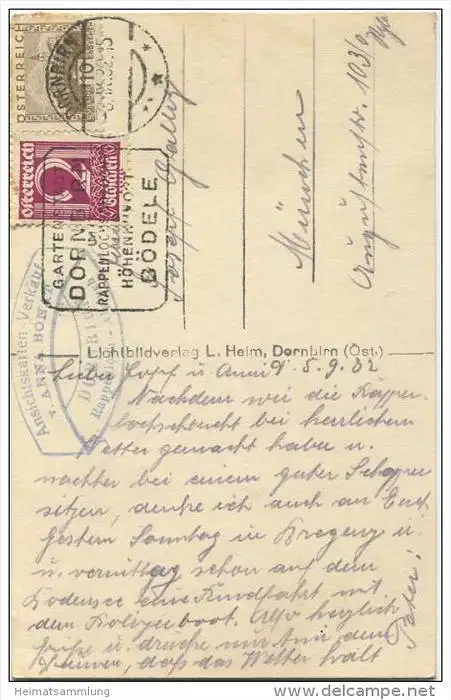 ÖSTERREICH
DORNBIRN
10
5.IX.32.15
Österreich
2
Groschen
GARTEN
DORNBIRN
RAPPENLOCHS
HÖHENK
BÖDELE
Ansichtskarten-Verkauf
v. ANNA BON
DORNBIRN
Rapp
Josef
München
Augustenstr. 103/0
Lichtbildverlag L. Heim, Dornbirn (Öst.)
Liebe Josef u. Anni 5.9.32
Nachdem wir die Rappen-
lochschlucht bei herrlichem
Wetter gemacht haben u.
nachher bei einem guten Schoppen
sitzen, denke ich auch an Euch
gestern Sonntag in Bregenz u.
u. vormittag schon auf dem
Bodensee eine Rundfahrt mit
dem Polizeiboot. Also herzlich
Grüße u. drücke nur mir den
Daumen, daß das Wetter hält
Peter!
Heimatsammlung
www.delcampe.net